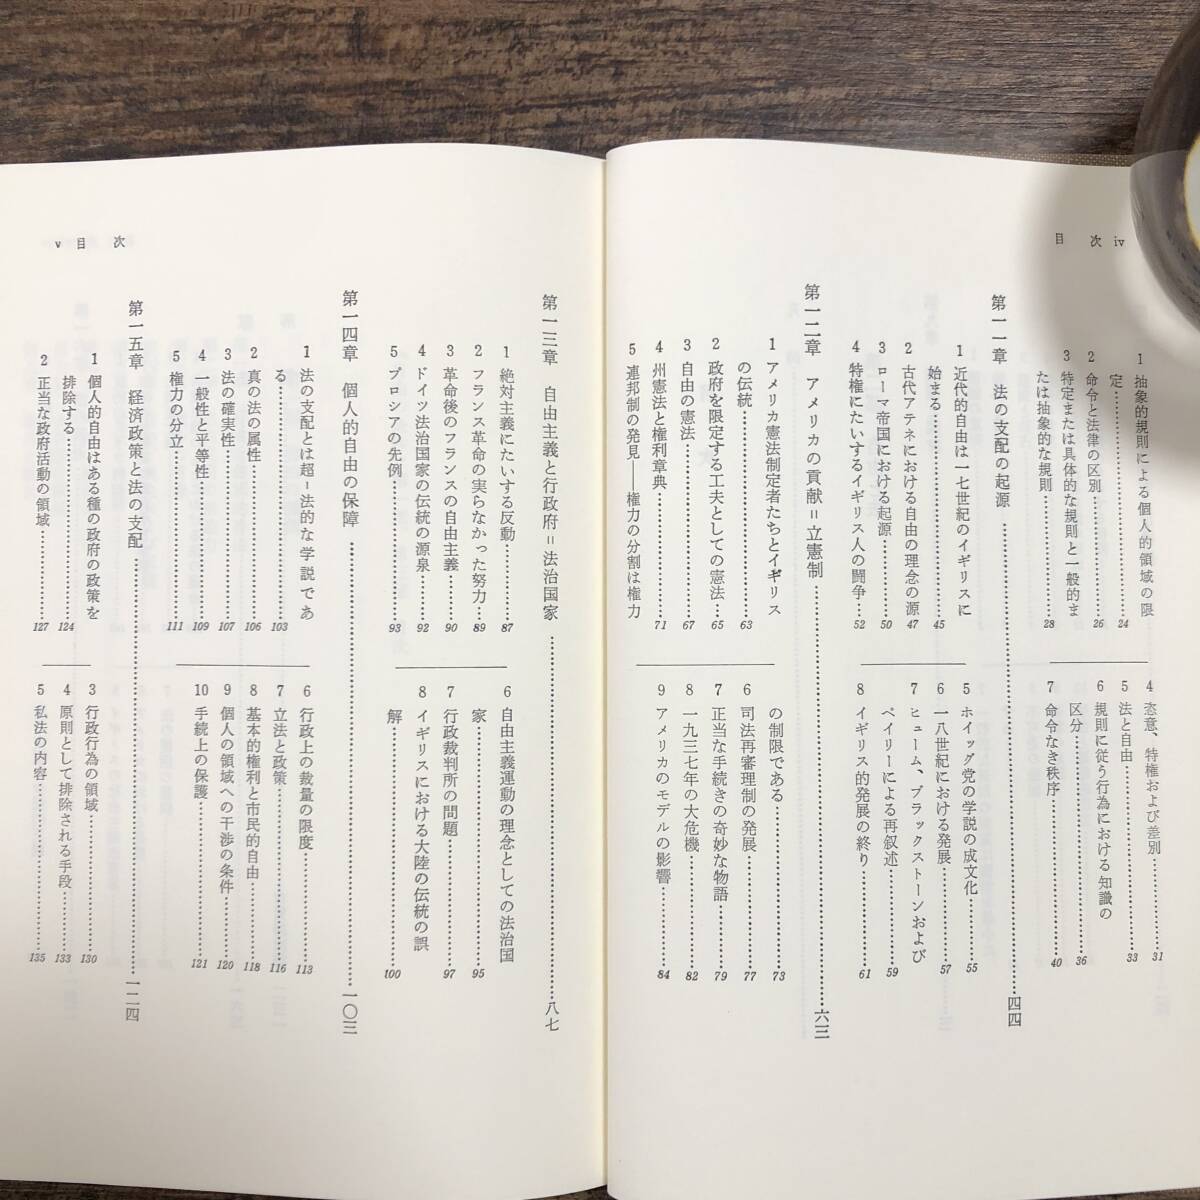 目 次 iv
1 抽象的規則による個人的領域の限
定…………24
2 命令と法律の区別…………26
3 特定または具体的な規則と一般的ま
たは抽象的な規則…………28
4 恣意、特権および差別…………31
5 法と自由…………33
6 規則に従う行為における知識の
区分…………36
7 命令なき秩序…………40
第一一章 法の支配の起源…………四四
1 近代的自由は一七世紀のイギリスに
始まる…………45
2 古代アテネにおける自由の理念の源 47
3 ローマ帝国における起源…………50
4 特権にたいするイギリス人の闘争…52
5 ホイッグ党の学説の成文化…………55
6 一八世紀における発展…………57
7 ヒューム、ブラックストーンおよび
ペイリーによる再叙述…………59
8 イギリス的発展の終り…………61
第一二章 アメリカの貢献=立憲制…………六三
1 アメリカ憲法制定者たちとイギリス
の伝統…………63
2 政府を限定する工夫としての憲法…65
3 自由の憲法…………67
4 州憲法と権利章典…………71
5 連邦制の発見――権力の分割は権力
の制限である…………73
6 司法再審理制の発展…………77
7 正当な手続きの奇妙な物語…………79
8 一九三七年の大危機…………82
9 アメリカのモデルの影響…………84
v 目 次
第一三章 自由主義と行政府=法治国家…………八七
1 絶対主義にたいする反動…………87
2 フランス革命の実らなかった努力…89
3 革命後のフランスの自由主義…………90
4 ドイツ法治国家の伝統の源泉…………92
5 プロシアの先例…………93
6 自由主義運動の理念としての法治国
家…………95
7 行政裁判所の問題…………97
8 イギリスにおける大陸の伝統の誤
解…………100
第一四章 個人的自由の保障…………一〇三
1 法の支配とは超-法的な学説であ
る…………103
2 真の法の属性…………106
3 法の確実性…………107
4 一般性と平等性…………109
5 権力の分立…………111
6 行政上の裁量の限度…………113
7 立法と政策…………116
8 基本的権利と市民的自由…………118
9 個人の領域への干渉の条件…………120
10 手続上の保護…………121
第一五章 経済政策と法の支配…………一二四
1 個人的自由はある種の政府の政策を
排除する…………124
2 正当な政府活動の領域…………127
3 行政行為の領域…………130
4 原則として排除される手段…………133
5 私法の内容…………135